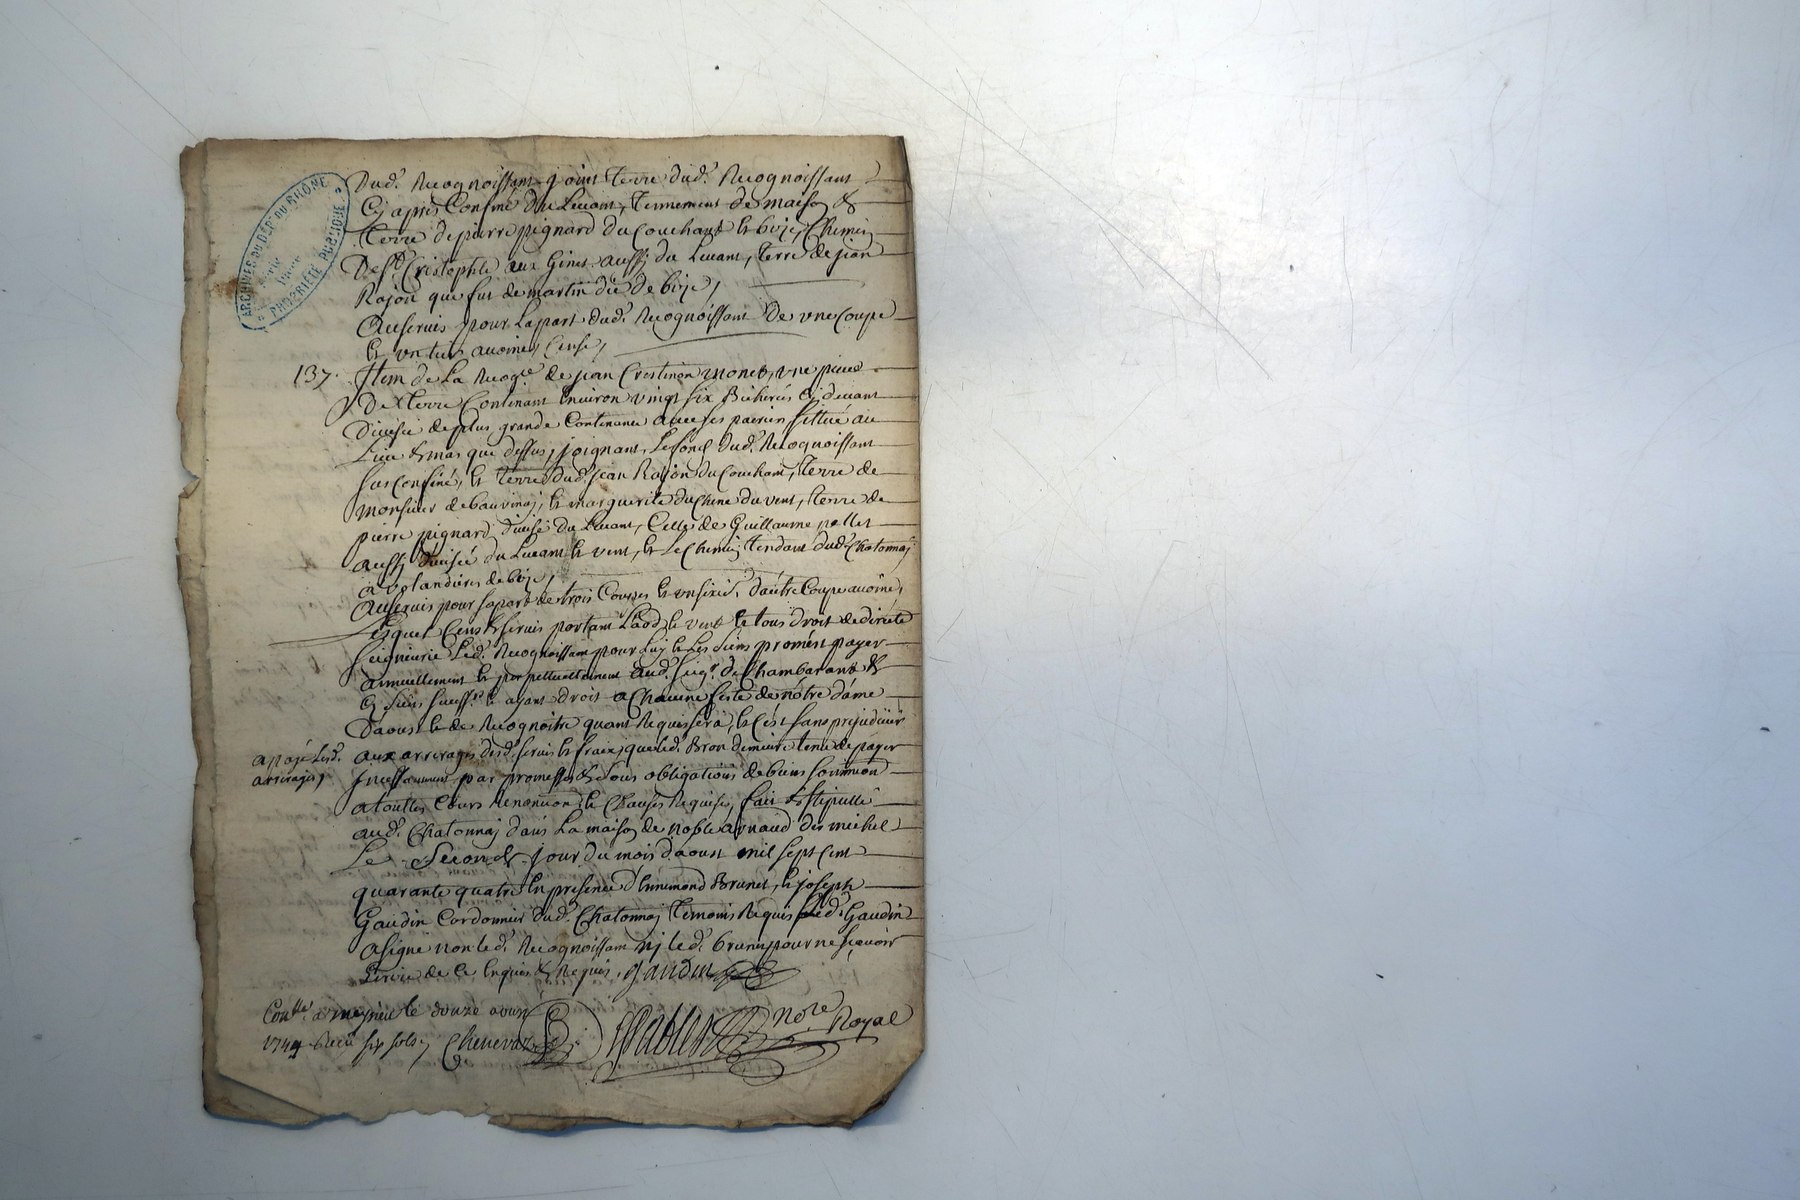 ARCHIVES DU DÉPT DU RHÔNE
PROPRIÉTÉ PUBLIQUE
Dud.t Recognoissant joint terre dud.t Recognoissant
Cy apres Confiné du Levant, tennement de maison &
terre de pierre pignard du Couchant et bize, Chemin
De St. Cristophle aux Gines aussy du Levant, terre de jean
Rajon que fut de martin de bize,
Au servis pour la part dud.t Recognoissant De une Coupe
et un tiers avoine, Cense,
137. Item de La Recog.ce de jean Crestinon monet, une piece
De terre Contenant Environ vingt six Bicherées Cy devant
Divisée de plus grande Contenance avec ses parien scittué au
Lieu & mas que dessus, joignant, Le fond dud.t Recognoissant
sus Confiné, et terre dud.t jean Rajon du Couchant, terre de
Monsieur de bauvinay, et marguerite duchene du vent, terre de
pierre pignard Divisé du Levant, Celle de Guillaume pellet
aussy divisée du Levant et vent, et Le Chemin tendant dud.t Chatonnay
a volandieres de bize,
Au servis pour sa part de trois Coupes et un sixie. d'autre Coupe avoine,
Lesquel Cens & servis portant Laod, et vent et tous droit de directe
seigneurie Led.t Recognoissant pour Luy et Les siens promest payer
annuellement et perpetuellement aud.t seig.r de Chambarant &
Es siens success.rs et ayant droit a Chacune feste de nôtre dame
Daoust et de Recognoitre quant Requis sera, et C'est sans prejudice
a payé Lesd. aux arrerages desd. servis et fraix, que led.t Bron demeure tenu de payer
arrerages, Incessamment, par promesses & sous obligations de biens soumission
a touttes Cours Renonciaon et Clauses Requises, fait & stipullé
aud.t Chatonnay dans La maison de noble arnaud des michel
Le Second jour du mois d'aoust mil sept Cent
quarante quatre En presence d'Ennemond Brunet, et joseph
Gaudin Cordonnier dud.t Chatonnay temoins Requis Led.t Gaudin
a signé non led.t Recognoissant ny led.t brunet pour ne sçavoir
Ecrire de Ce Enquis & Requis, Gaudin
Con.llé a meyrieu le douze aoust
1744 Receu six sols, Nore Royal